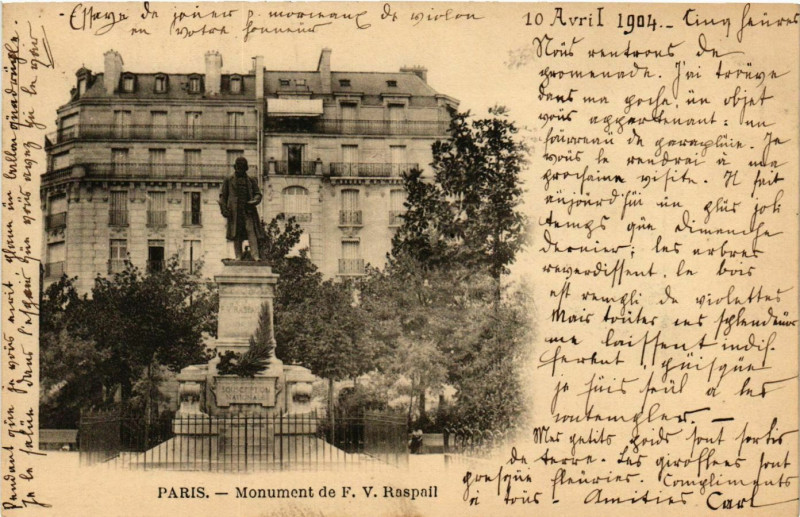 Essaye de jouer p. morceaux de violon
en votre honneur
10 Avril 1904. - Cinq heures
Nous rentrons de
promenade. J'ai trouvé
dans ma poche, un objet
vous appartenant : un
fourreau de parapluie. Je
vous le rendrai à ma
prochaine visite. Il fait
aujourd'hui un plus joli
temps que dimanche
dernier ; les arbres
reverdissent, le bois
est rempli de violettes
Mais toutes ces splendeurs
me laissent indif-
ferent, puisque
je suis seul à les
contempler. -
Mes petits pois sont sortis
de terre. Les giroflées sont
presque fleuries. Compliments
à tous - Amitiés Carl
Pendant que je vous écrit plane un ballon
Je le salue dans l'espoir que vous avez pu le voir
SOUSCRIPTION
NATIONALE
PARIS. — Monument de F. V. Raspail